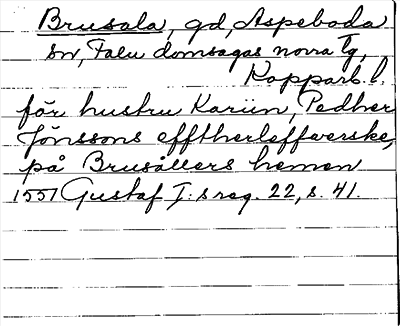 Brusala, gd, Aspeboda
sn, Falu domsagas norra tg,
Kopparb. l.
för hustru Kariin, Pedher
Jönssons efftherleffwerske,
på Brusållers hemen
1551 Gustaf I:s reg. 22, s. 41.